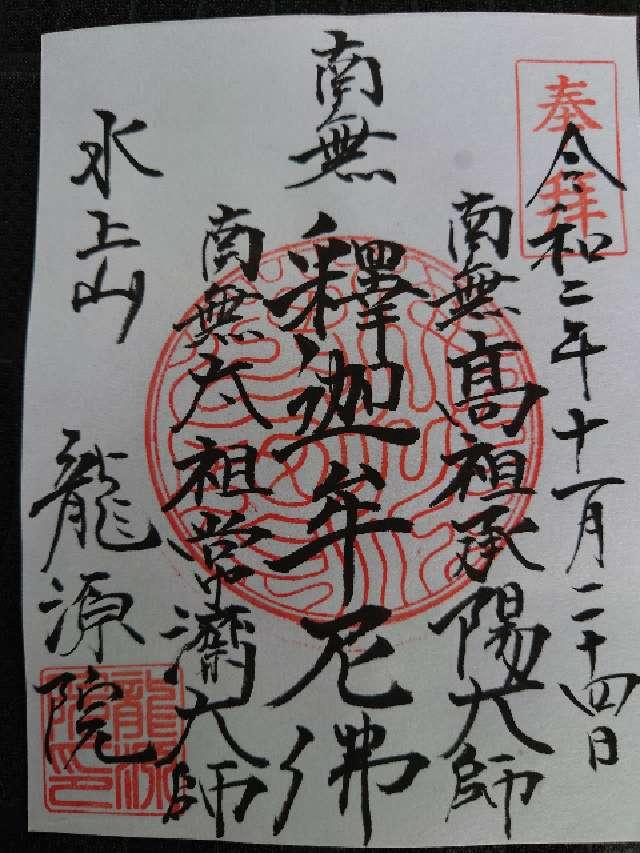 奉拝
令和二年十一月二十四日
南無高祖承陽大師
南無釋迦牟尼佛
南無太祖常濟大師
水上山
龍源院
龍源院印